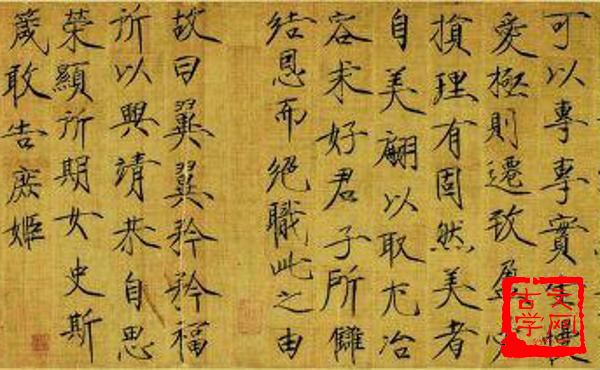 可以專專實生慢
愛極則遷致盈必
損理有固然美者
自美翩以取尤冶
容求好君子所讎
結恩而絕職此之由
故曰翼翼矜矜福
所以興靖恭自思
榮顯所期女史斯
箴敢告庶姬
古文学网